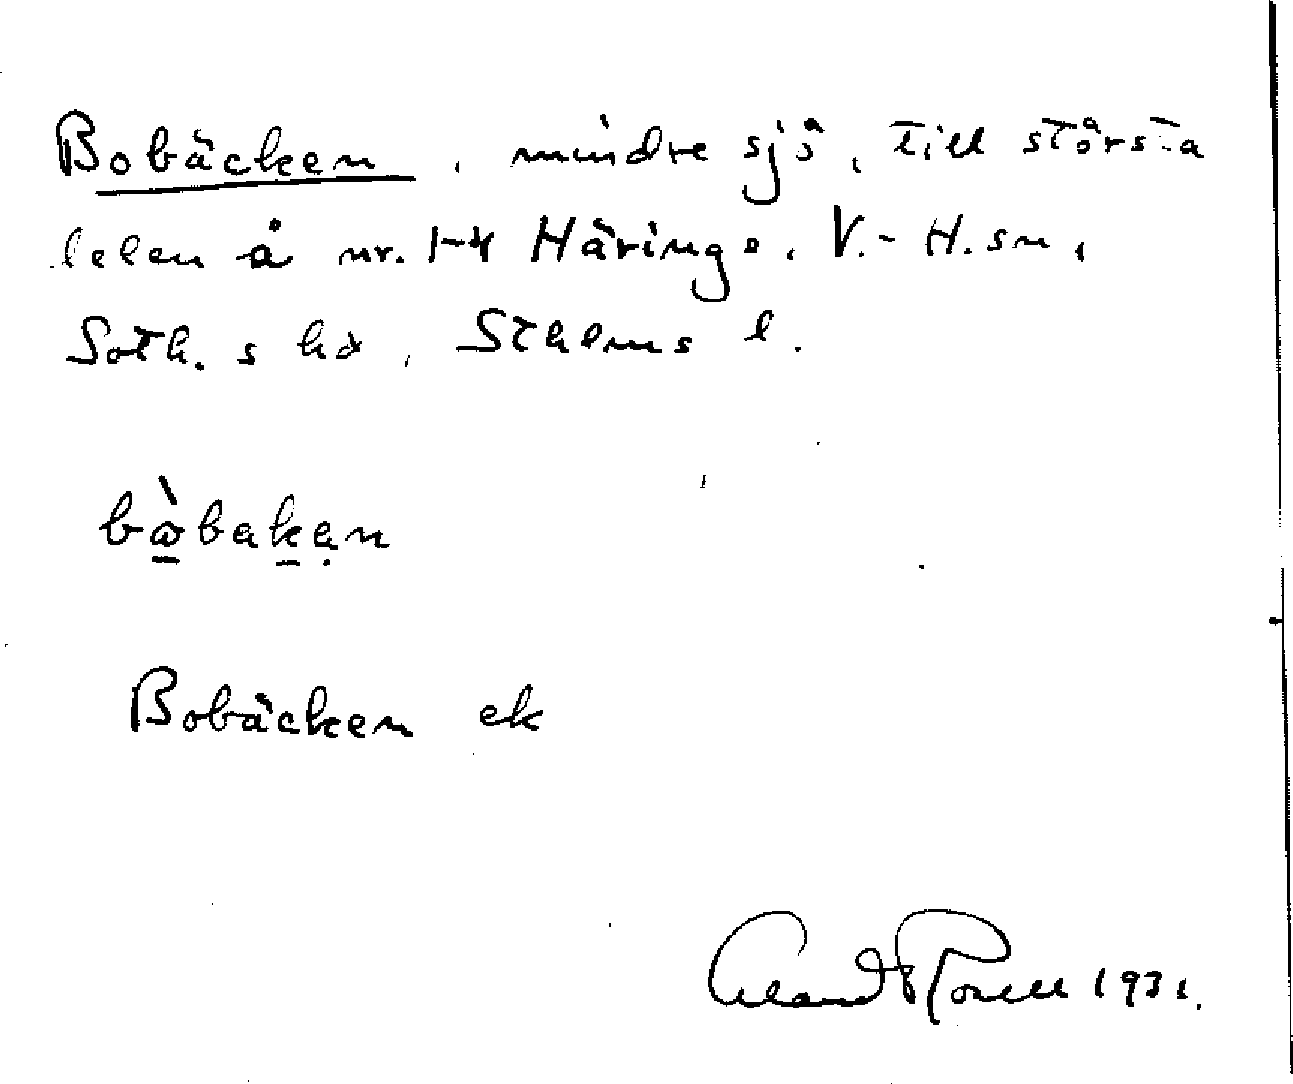 Bobäcken, mindre sjö, till största
delen å nr. 1-4 Häringe, V.-H. sn,
Soth. s hd, Sthlms l.
bòbakan
Bobäcken ek
1931.